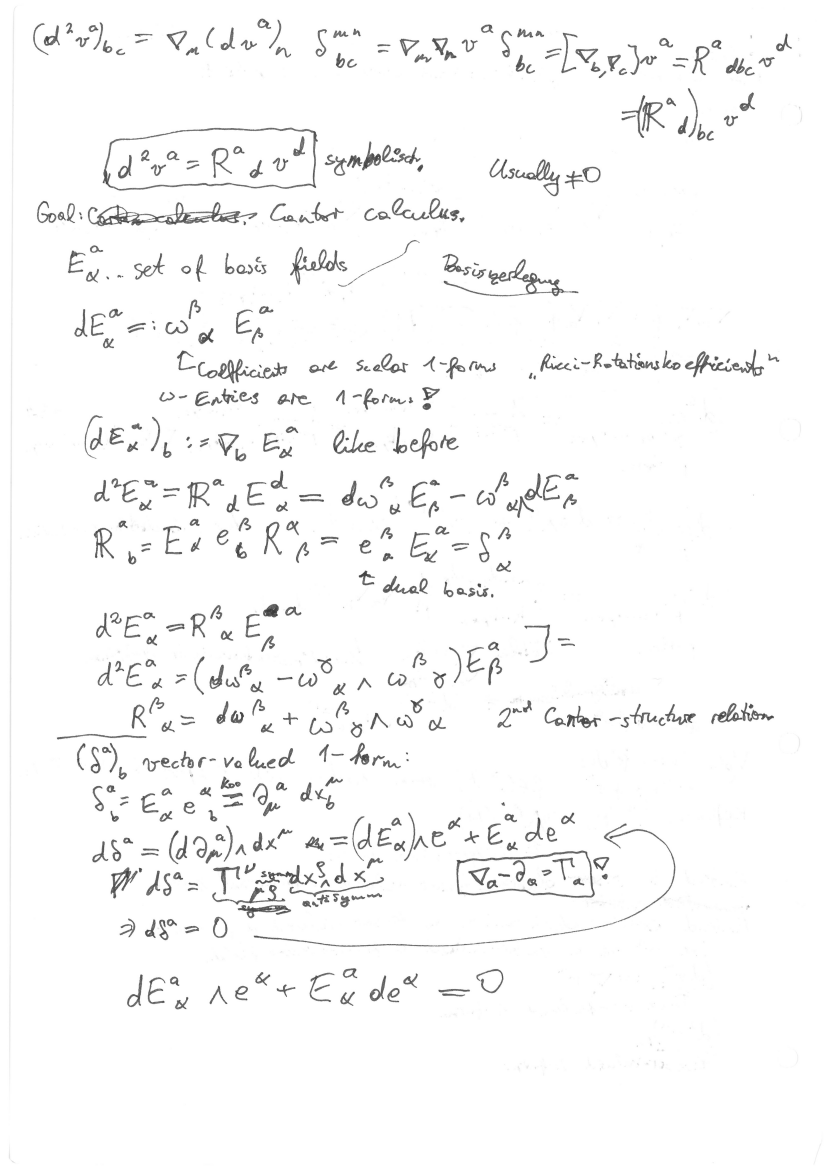 (d²vᵃ)_bc = ∇_m (dvᵃ)_n δ^mn_bc = ∇_m ∇_n vᵃ δ^mn_bc = [∇_b, ∇_c]vᵃ = Rᵃ_dbc v^d
= (ℝᵃ_d)_bc v^d
d²vᵃ = Rᵃ_d v^d symbolisch. Usually ≠ 0
Goal: Cantor calculus.
E_αᵃ .. set of basis fields Basiszerlegung
dE_αᵃ =: ω^β_α E_βᵃ
Coefficients are scalar 1-forms „Ricci-Rotationskoefficients"
ω-Entries are 1-forms!
(dE_αᵃ)_b := ∇_b E_αᵃ like before
d²E_αᵃ = ℝᵃ_d E_α^d = dω^β_α E_βᵃ − ω^β_α ∧ dE_βᵃ
ℝᵃ_b = E_αᵃ e^β_b R^α_β = e^β_a E_αᵃ = δ^β_α
↑ dual basis.
d²E_αᵃ = R^β_α E_βᵃ
d²E_αᵃ = (dω^β_α − ω^γ_α ∧ ω^β_γ) E_βᵃ ] =
R^β_α = dω^β_α + ω^β_γ ∧ ω^γ_α 2nd Cantor-structure relation
(δᵃ)_b vector-valued 1-form:
δᵃ_b = E_αᵃ e^α_b =^Koo ∂_μᵃ dx^μ_b
dδᵃ = (d∂_μᵃ) ∧ dx^μ = (dE_αᵃ) ∧ e^α + E_αᵃ de^α
dδᵃ = Γ^ν_μρ dx^ρ ∧ dx^μ ∇_a − ∂_a = Γ_a !
symm antisymm
⇒ dδᵃ = 0
dE_αᵃ ∧ e^α + E_αᵃ de^α = 0